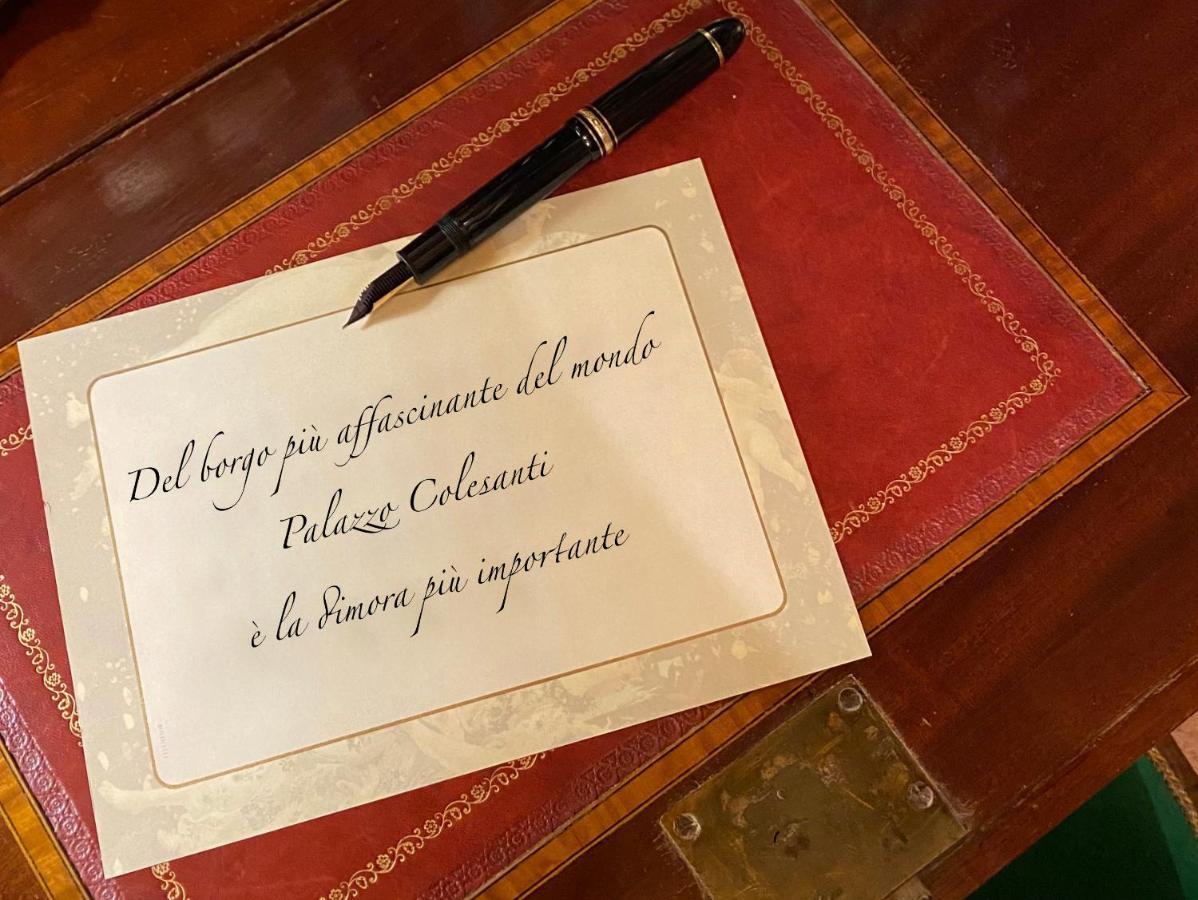 Del borgo più affascinante del mondo
Palazzo Colesanti
è la dimora più importante